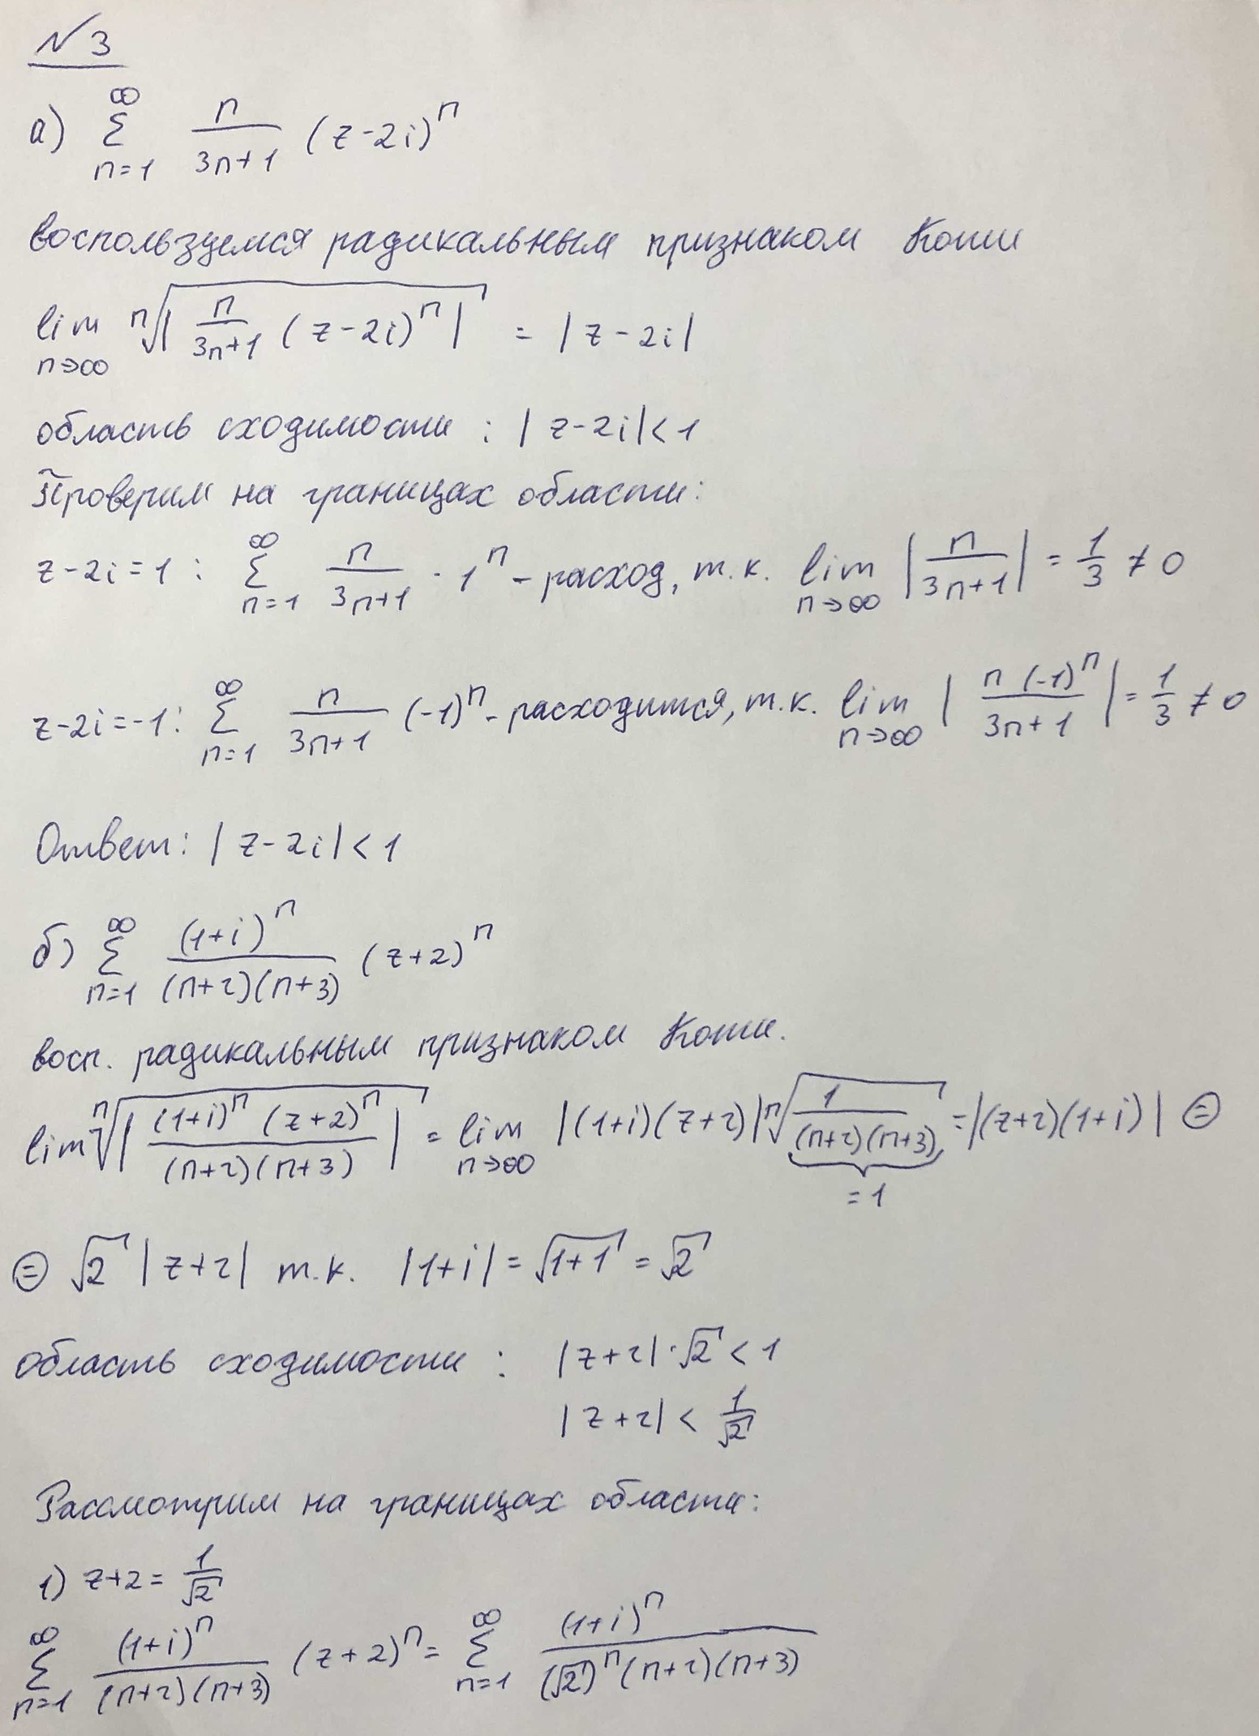 № 3
а) ∞∑n=1 n/(3n+1) (z-2i)^n
воспользуемся радикальным признаком Коши
lim n→∞ ⁿ√|n/(3n+1) (z-2i)^n| = |z-2i|
область сходимости : |z-2i|<1
Проверим на границах области:
z-2i=1 : ∞∑n=1 n/(3n+1) · 1^n - расход, т.к. lim n→∞ |n/(3n+1)| = 1/3 ≠ 0
z-2i=-1 : ∞∑n=1 n/(3n+1) (-1)^n - расходится, т.к. lim n→∞ |n(-1)^n/(3n+1)| = 1/3 ≠ 0
Ответ: |z-2i|<1
б) ∞∑n=1 (1+i)^n/((n+2)(n+3)) (z+2)^n
восп. радикальным признаком Коши.
lim ⁿ√|(1+i)^n (z+2)^n/((n+2)(n+3))| = lim n→∞ |(1+i)(z+2)| ⁿ√(1/((n+2)(n+3))) = |(z+2)(1+i)| ⊜
= 1
⊜ √2 |z+2| т.к. |1+i| = √(1+1) = √2
область сходимости : |z+2|·√2 < 1
|z+2| < 1/√2
Рассмотрим на границах области:
1) z+2 = 1/√2
∞∑n=1 (1+i)^n/((n+2)(n+3)) (z+2)^n = ∞∑n=1 (1+i)^n/((√2)^n (n+2)(n+3))